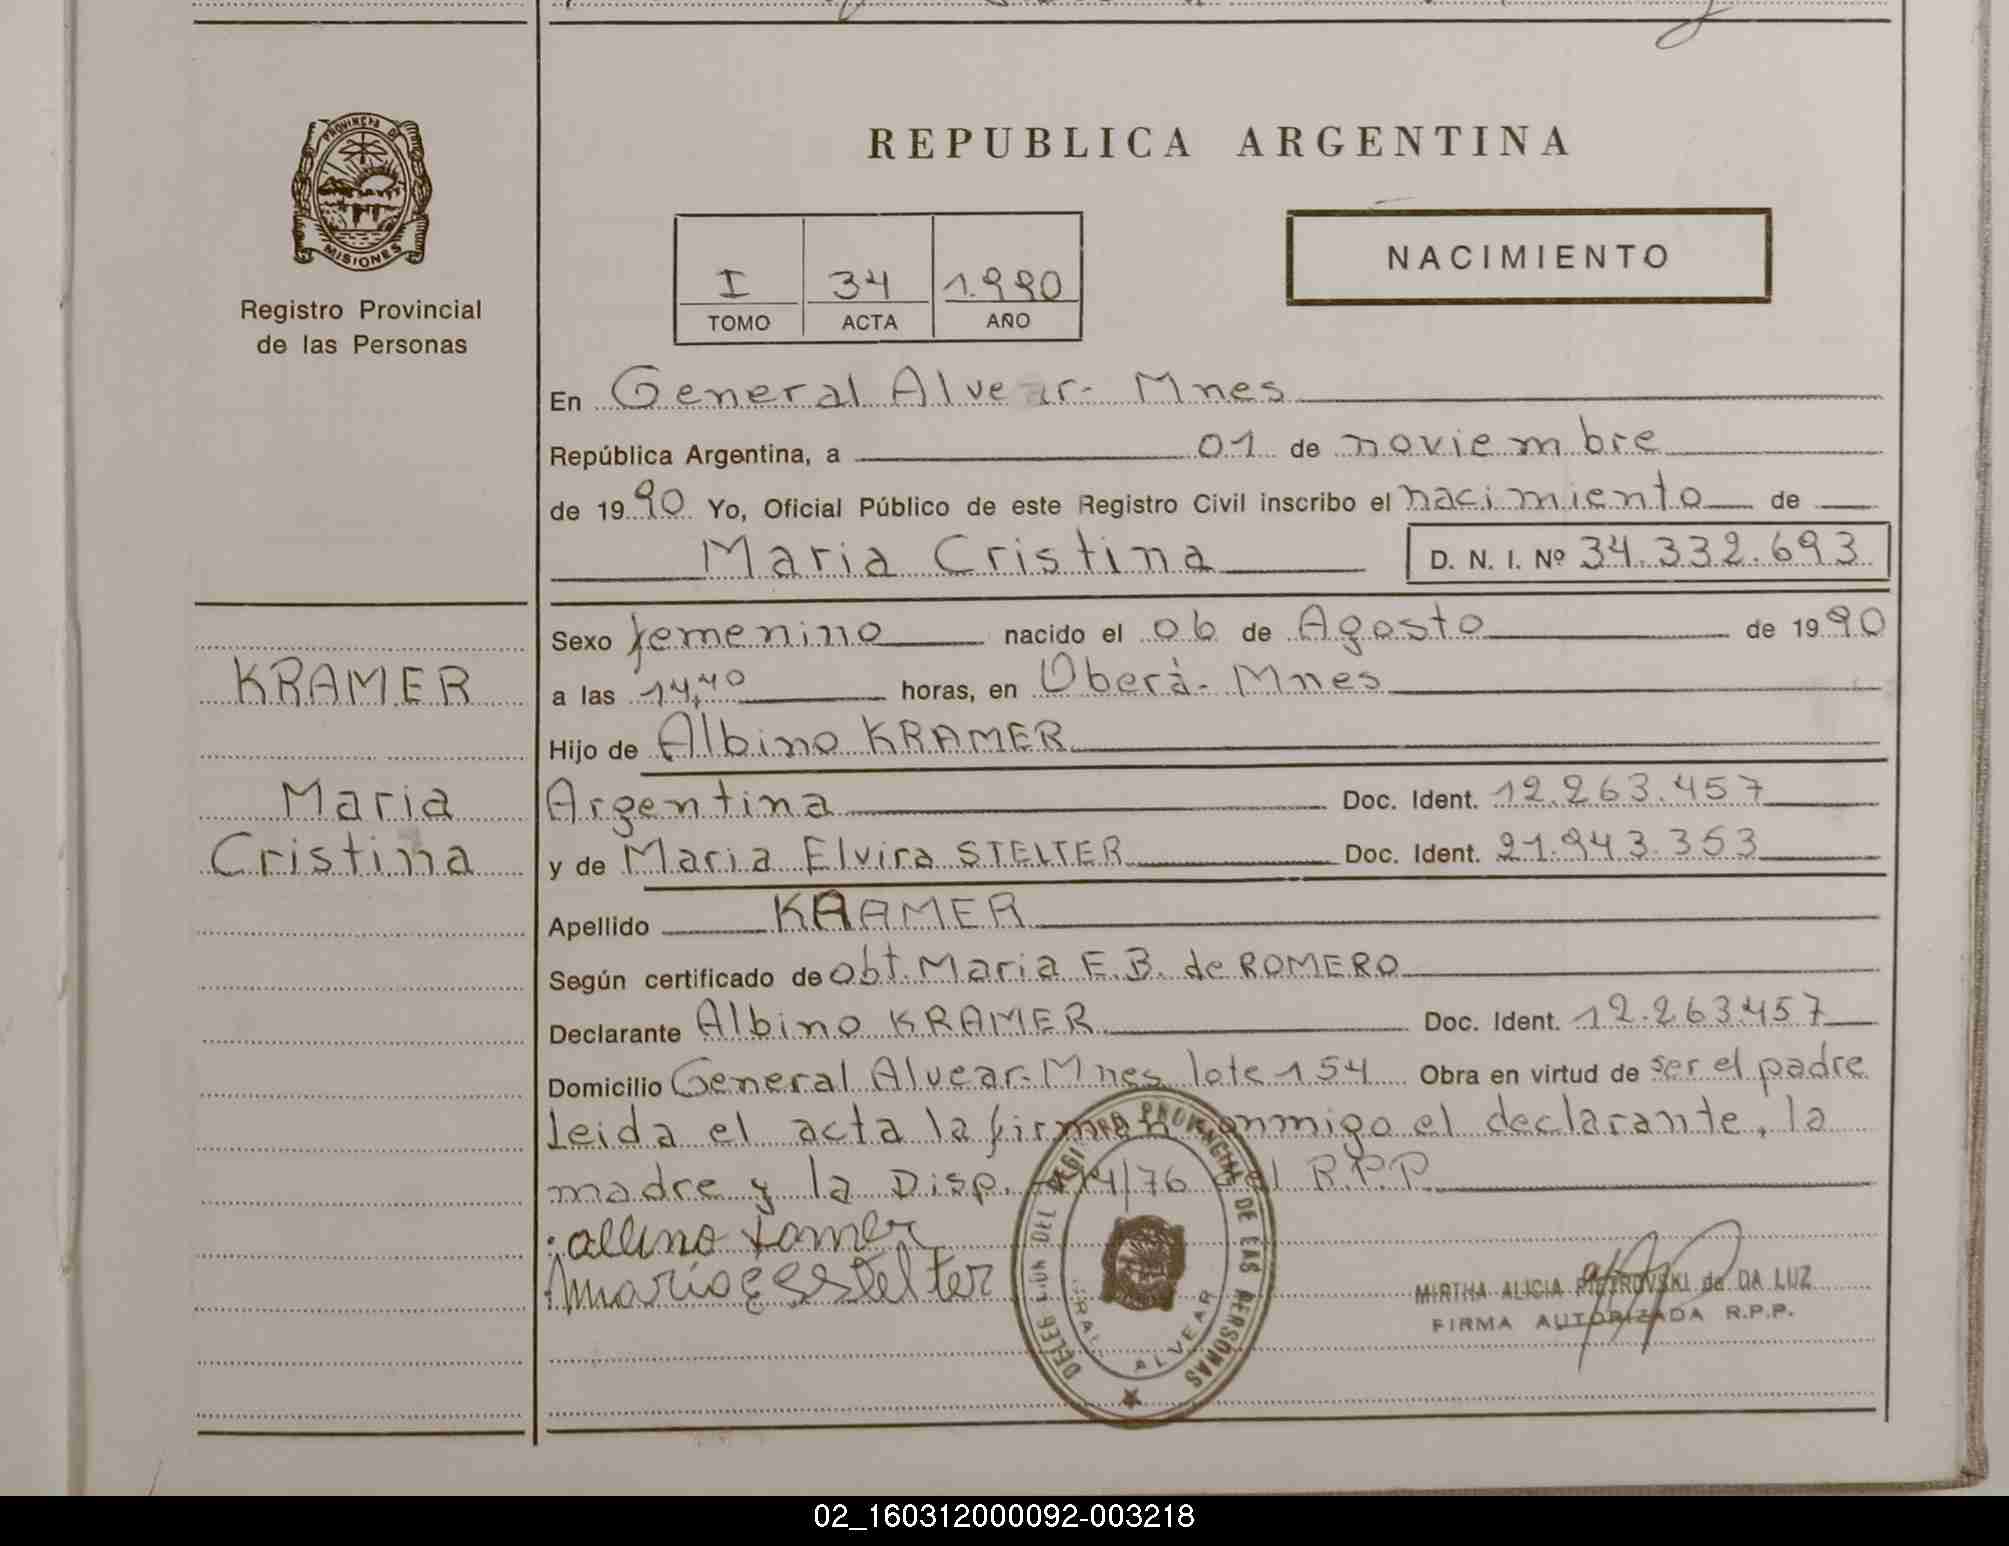 PROVINCIA DE
MISIONES
Registro Provincial
de las Personas
REPUBLICA ARGENTINA
I 34 1.990
TOMO ACTA AÑO
NACIMIENTO
En General Alvear- Mnes
República Argentina, a 01 de noviembre
de 1990 Yo, Oficial Público de este Registro Civil inscribo el nacimiento de
Maria Cristina D. N. I. Nº 34.332.693
KRAMER
Maria
Cristina
Sexo femenino nacido el 06 de Agosto de 1990
a las 14,40 horas, en Oberá- Mnes
Hijo de Albino KRAMER
Argentina Doc. Ident. 12.263.457
y de Maria Elvira STELTER Doc. Ident. 21.943.353
Apellido KRAMER
Según certificado de obt. Maria E.B. de ROMERO
Declarante Albino KRAMER Doc. Ident. 12.263.457
Domicilio General Alvear-Mnes lote 154 Obra en virtud de ser el padre
Leida el acta la firman conmigo el declarante, la
madre y la Disp. /76 del R.P.P
maria E Stelter
DEL REGI PROVINCIAL DE LAS PERSONAS
GRAL. ALVEAR
MIRTHA ALICIA PIETROVSKI de DA LUZ
FIRMA AUTORIZADA R.P.P.
02_160312000092-003218